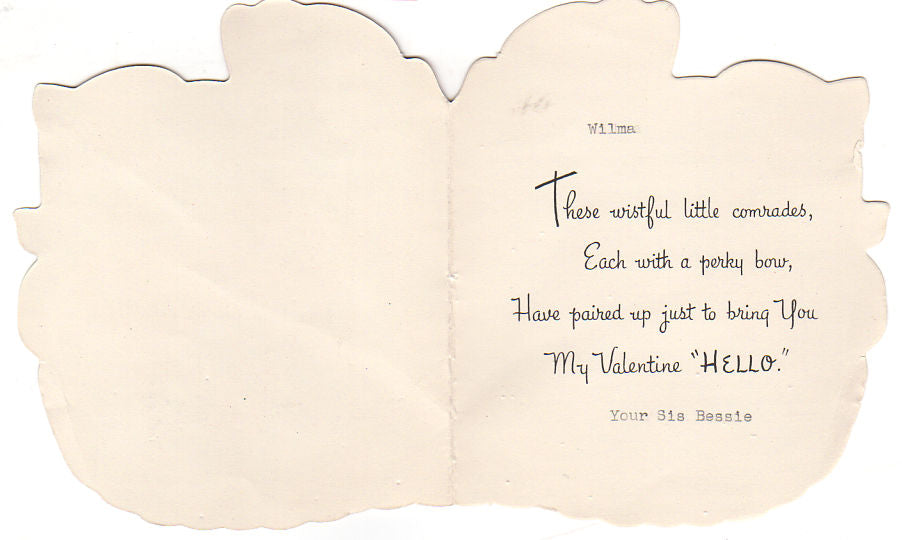 Wilma
These wistful little comrades,
Each with a perky bow,
Have paired up just to bring You
My Valentine "HELLO."
Your Sis Bessie